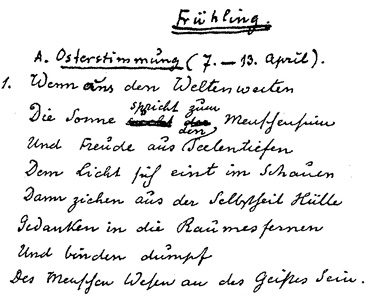 Frühling.
A. Osterstimmung (7. – 13. April).
1. Wenn aus den Weltenweiten
Die Sonne spricht zum Menschensinn
Und Freude aus den Seelentiefen
Dem Licht sich eint im Schauen
Dann ziehen aus der Selbstheit Hülle
Gedanken in die Raumesfernen
Und binden dumpf
Des Menschen Wesen an des Geistes Sein.